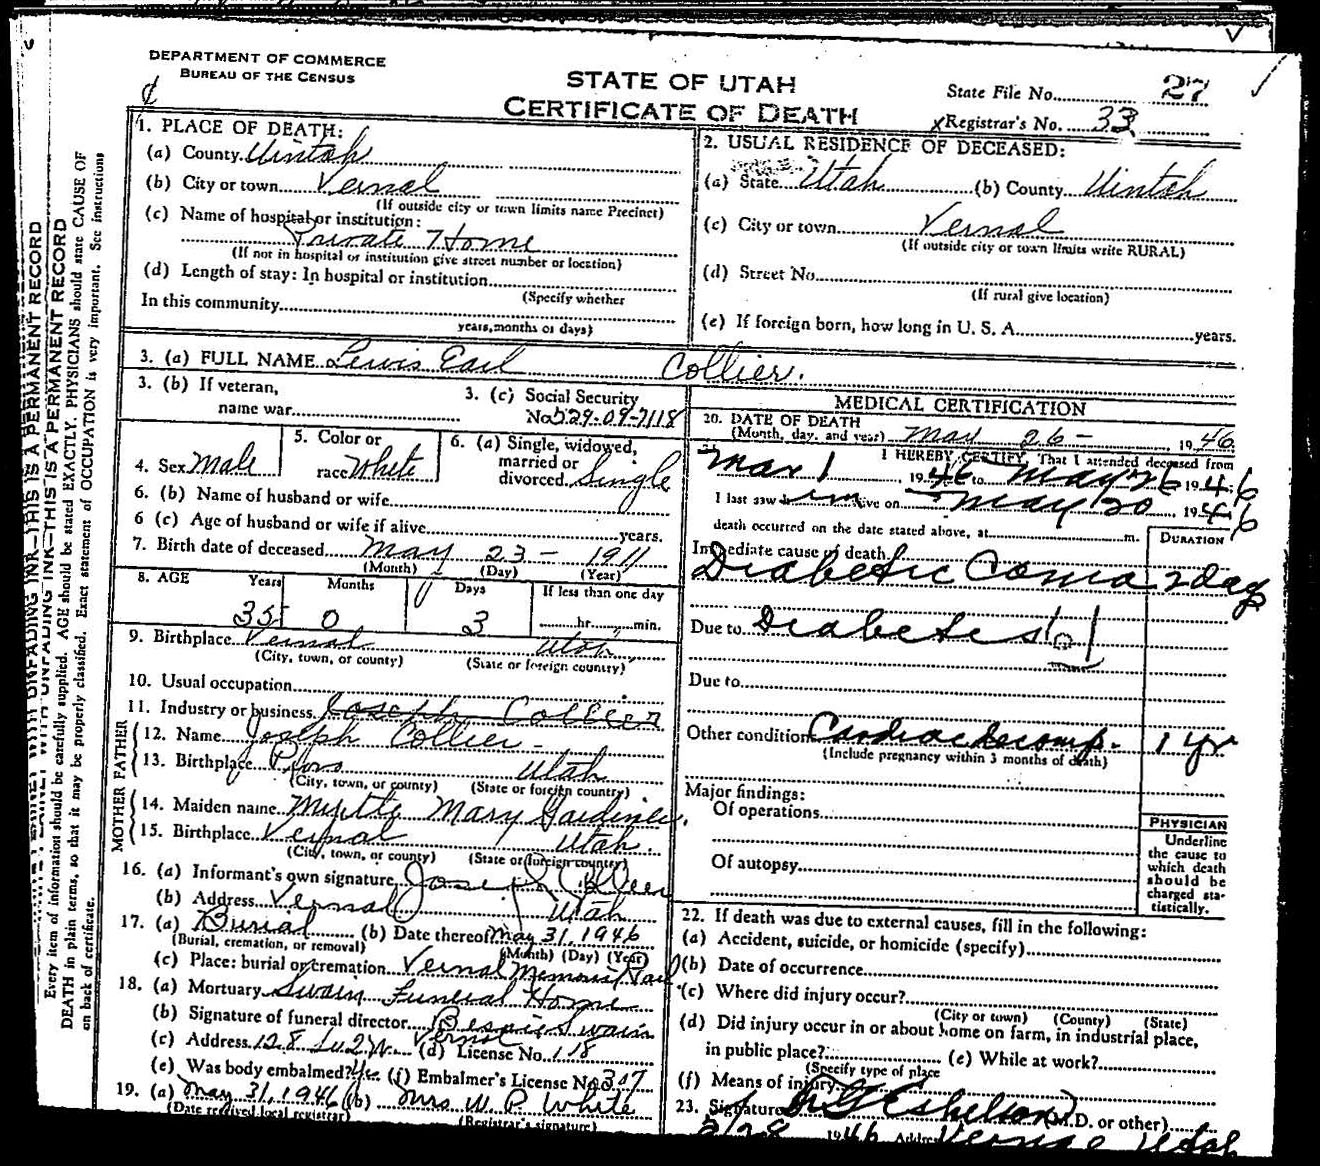 DEPARTMENT OF COMMERCE
BUREAU OF THE CENSUS
STATE OF UTAH
CERTIFICATE OF DEATH
State File No. 27
Registrar's No. 33
1. PLACE OF DEATH:
(a) County Uintah
(b) City or town Vernal
(If outside city or town limits name Precinct)
(c) Name of hospital or institution:
Private Home
(If not in hospital or institution give street number or location)
(d) Length of stay: In hospital or institution
(Specify whether
In this community
years, months or days)
2. USUAL RESIDENCE OF DECEASED:
(a) State Utah (b) County Uintah
(c) City or town Vernal
(If outside city or town limits write RURAL)
(d) Street No.
(If rural give location)
(e) If foreign born, how long in U. S. A. years.
3. (a) FULL NAME Lewis Earl Collier.
3. (b) If veteran,
name war
3. (c) Social Security
No. 529-09-7118
4. Sex Male
5. Color or
race White
6. (a) Single, widowed,
married or
divorced Single
6. (b) Name of husband or wife
6 (c) Age of husband or wife if alive years.
7. Birth date of deceased May 23 - 1911
(Month) (Day) (Year)
8. AGE Years Months Days If less than one day
35 0 3 hr. min.
9. Birthplace Vernal Utah
(City, town, or county) (State or foreign country)
10. Usual occupation
11. Industry or business Joseph Collier
MOTHER FATHER
12. Name Joseph Collier -
13. Birthplace Utah
(City, town, or county) (State or foreign country)
14. Maiden name Myrtle Mary Gardiner.
15. Birthplace Vernal Utah.
(City, town, or county) (State or foreign country)
16. (a) Informant's own signature Joseph Collier
(b) Address Vernal Utah
17. (a) Burial (b) Date thereof May 31, 1946
(Burial, cremation, or removal) (Month) (Day) (Year)
(c) Place: burial or cremation Vernal Memorial Park
18. (a) Mortuary Swain Funeral Home
(b) Signature of funeral director Bessie Swain
Vernal
(c) Address 128 So 2 W. (d) License No. 118
(e) Was body embalmed? Yes (f) Embalmer's License No. 307
19. (a) May 31, 1946 (b) Mrs W. P. White
(Date received local registrar) (Registrar's signature)
MEDICAL CERTIFICATION
20. DATE OF DEATH
(Month, day, and year) May 26 - 1946
I HEREBY CERTIFY, That I attended deceased from
Mar 1 1946 to May 26 1946
I last saw him alive on May 20 1946
death occurred on the date stated above, at m.
DURATION
Immediate cause of death
Diabetic Coma 2 days
Due to Diabetes
Due to
Other condition Cardiac decomp. 1 yr
(Include pregnancy within 3 months of death)
Major findings:
Of operations
Of autopsy
PHYSICIAN
Underline
the cause to
which death
should be
charged sta-
tistically.
22. If death was due to external causes, fill in the following:
(a) Accident, suicide, or homicide (specify)
(b) Date of occurrence
(c) Where did injury occur?
(City or town) (County) (State)
(d) Did injury occur in or about home on farm, in industrial place,
in public place? (e) While at work?
(Specify type of place
(f) Means of injury
23. Signature Eskelson (M.D. or other)
1946 Address Vernal Utah
WITH UNFADING INK—THIS IS A PERMANENT RECORD
Every item of information should be carefully supplied. AGE should be stated EXACTLY. PHYSICIANS should state CAUSE OF
DEATH in plain terms, so that it may be properly classified. Exact statement of OCCUPATION is very important. See instructions
on back of certificate.